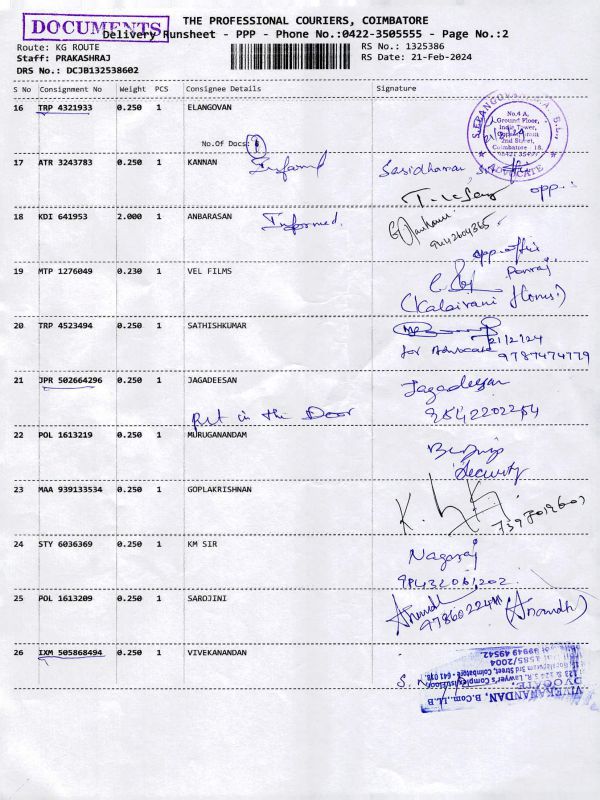 DOCUMENTS
THE PROFESSIONAL COURIERS, COIMBATORE
Delivery Runsheet - PPP - Phone No.:0422-3505555 - Page No.:2
Route: KG ROUTE
Staff: PRAKASHRAJ
DRS No.: DCJB132538602
RS No.: 1325386
RS Date: 21-Feb-2024
S No Consignment No Weight PCS Consignee Details Signature
16 TRP 4321933 0.250 1 ELANGOVAN
No.Of Docs:
No.4 A,
Ground Floor,
2nd Street,
Coimbatore - 18.
ADVOCATE
17 ATR 3243783 0.250 1 KANNAN
Sasidharan
opp.
18 KDI 641953 2.000 1 ANBARASAN Informed.
9442604365
19 MTP 1276049 0.230 1 VEL FILMS
(Kalairani
20 TRP 4523494 0.250 1 SATHISHKUMAR
21/2/24
for Advocate 9787474779
21 JPR 502664296 0.250 1 JAGADEESAN Jagadeesan
Put in the Door
22 POL 1613219 0.250 1 MURUGANANDAM
Security
23 MAA 939133534 0.250 1 GOPLAKRISHNAN
24 STY 6036369 0.250 1 KM SIR Nagaraj
25 POL 1613209 0.250 1 SAROJINI
(Anandh)
26 IXM 505868494 0.250 1 VIVEKANANDAN
VIVEKANANDAN, B.Com.,LL.B
ADVOCATE,
1585/2004